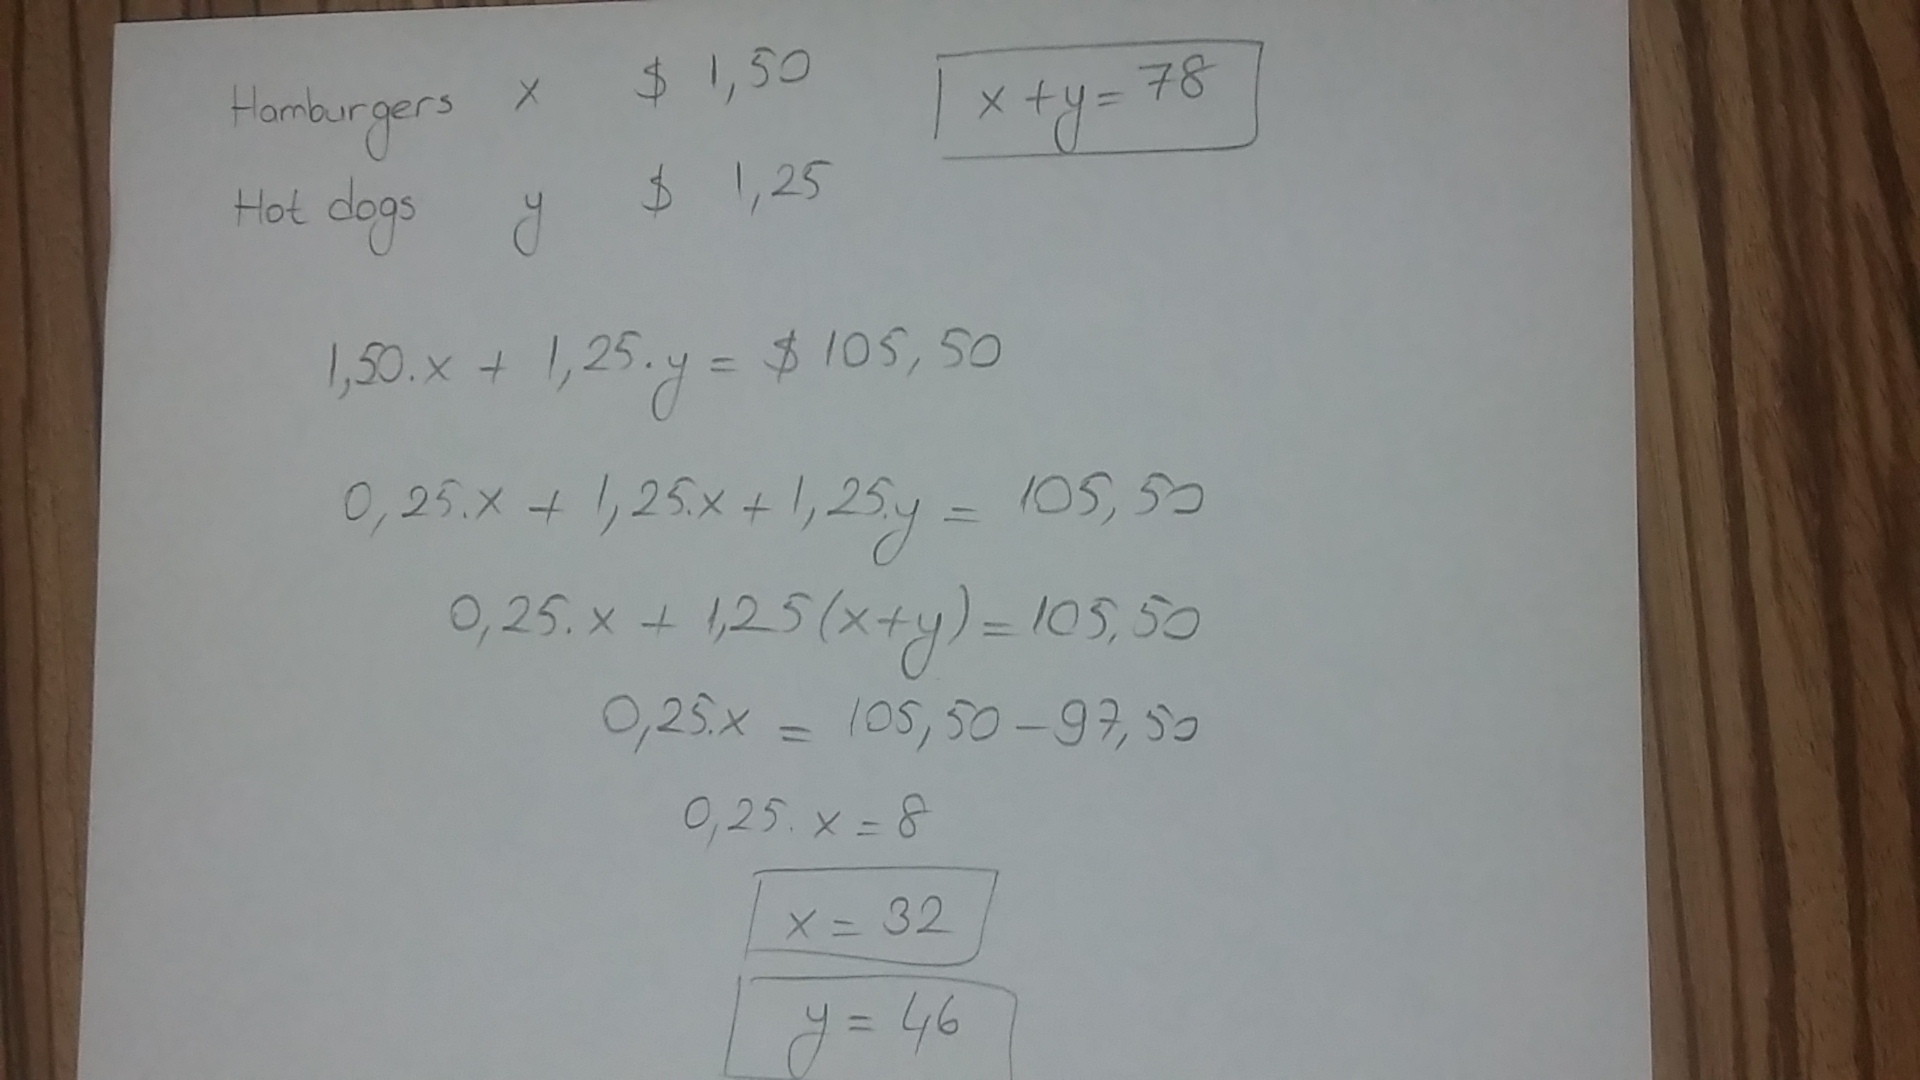 Hamburgers x $ 1,50 x + y = 78
Hot dogs y $ 1,25
1,50.x + 1,25.y = $ 105,50
0,25.x + 1,25.x + 1,25.y = 105,50
0,25.x + 1,25(x+y) = 105,50
0,25.x = 105,50 - 97,50
0,25.x = 8
x = 32
y = 46